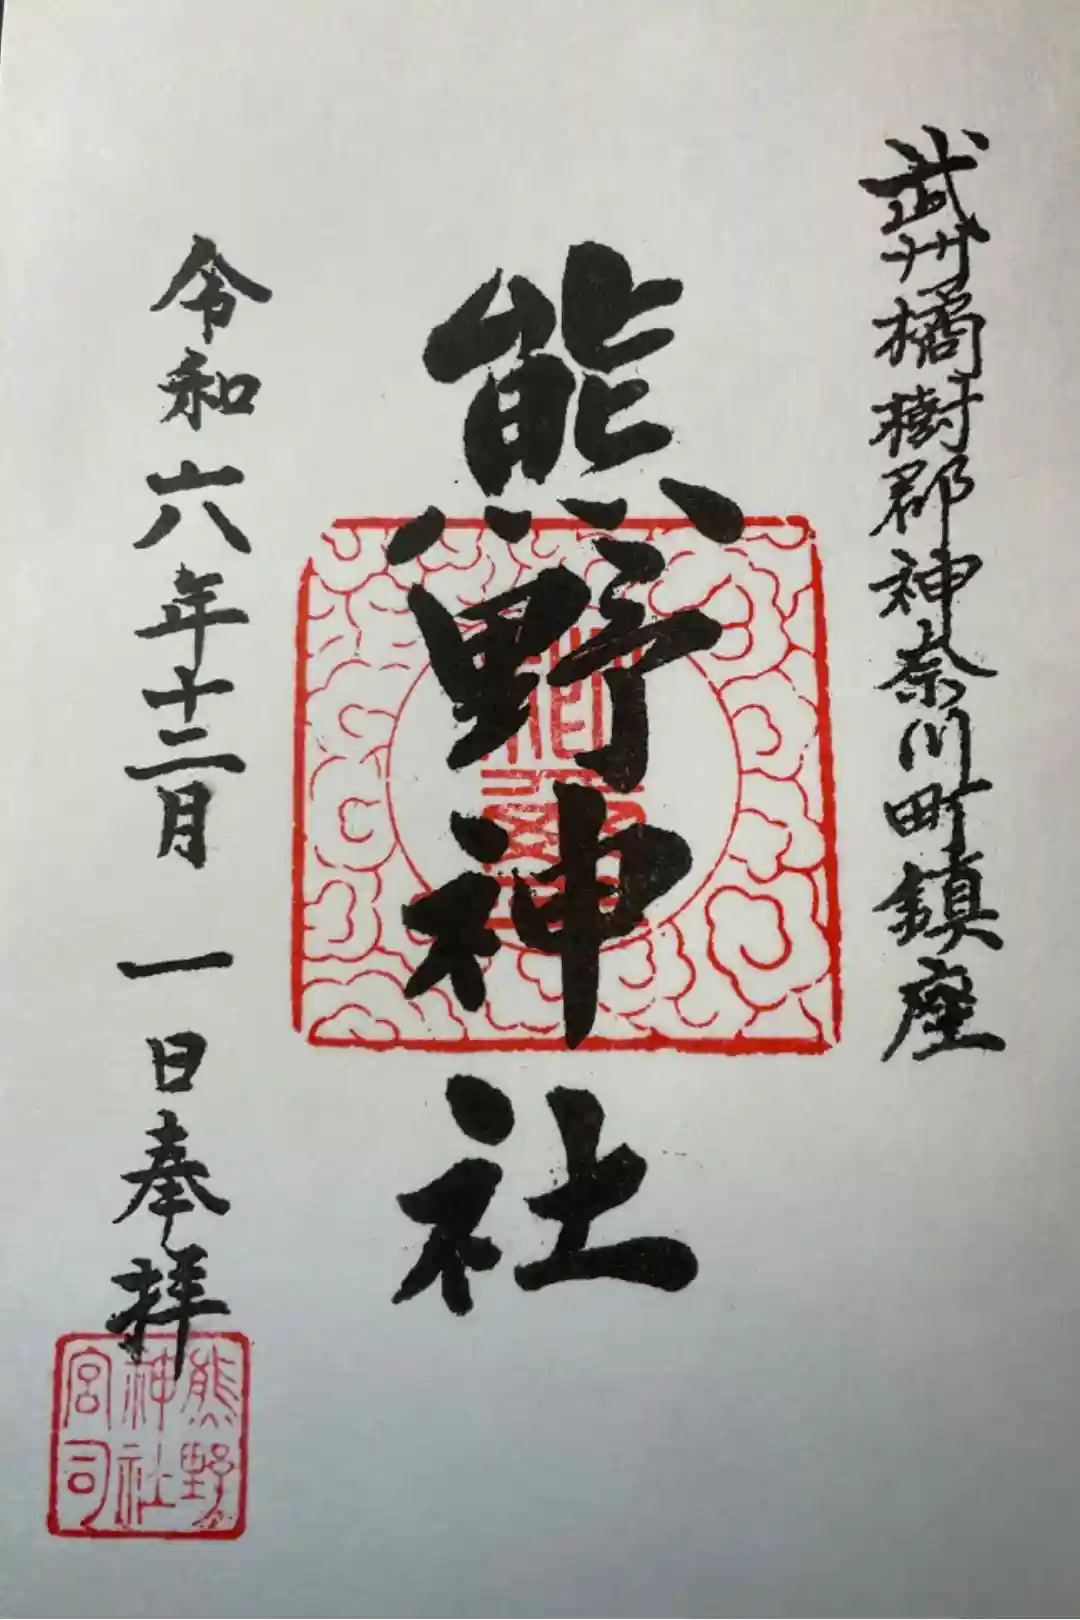 武州橘樹郡神奈川町鎮座
熊野神社
令和六年十二月 一日奉拝
熊野
神社
宮司